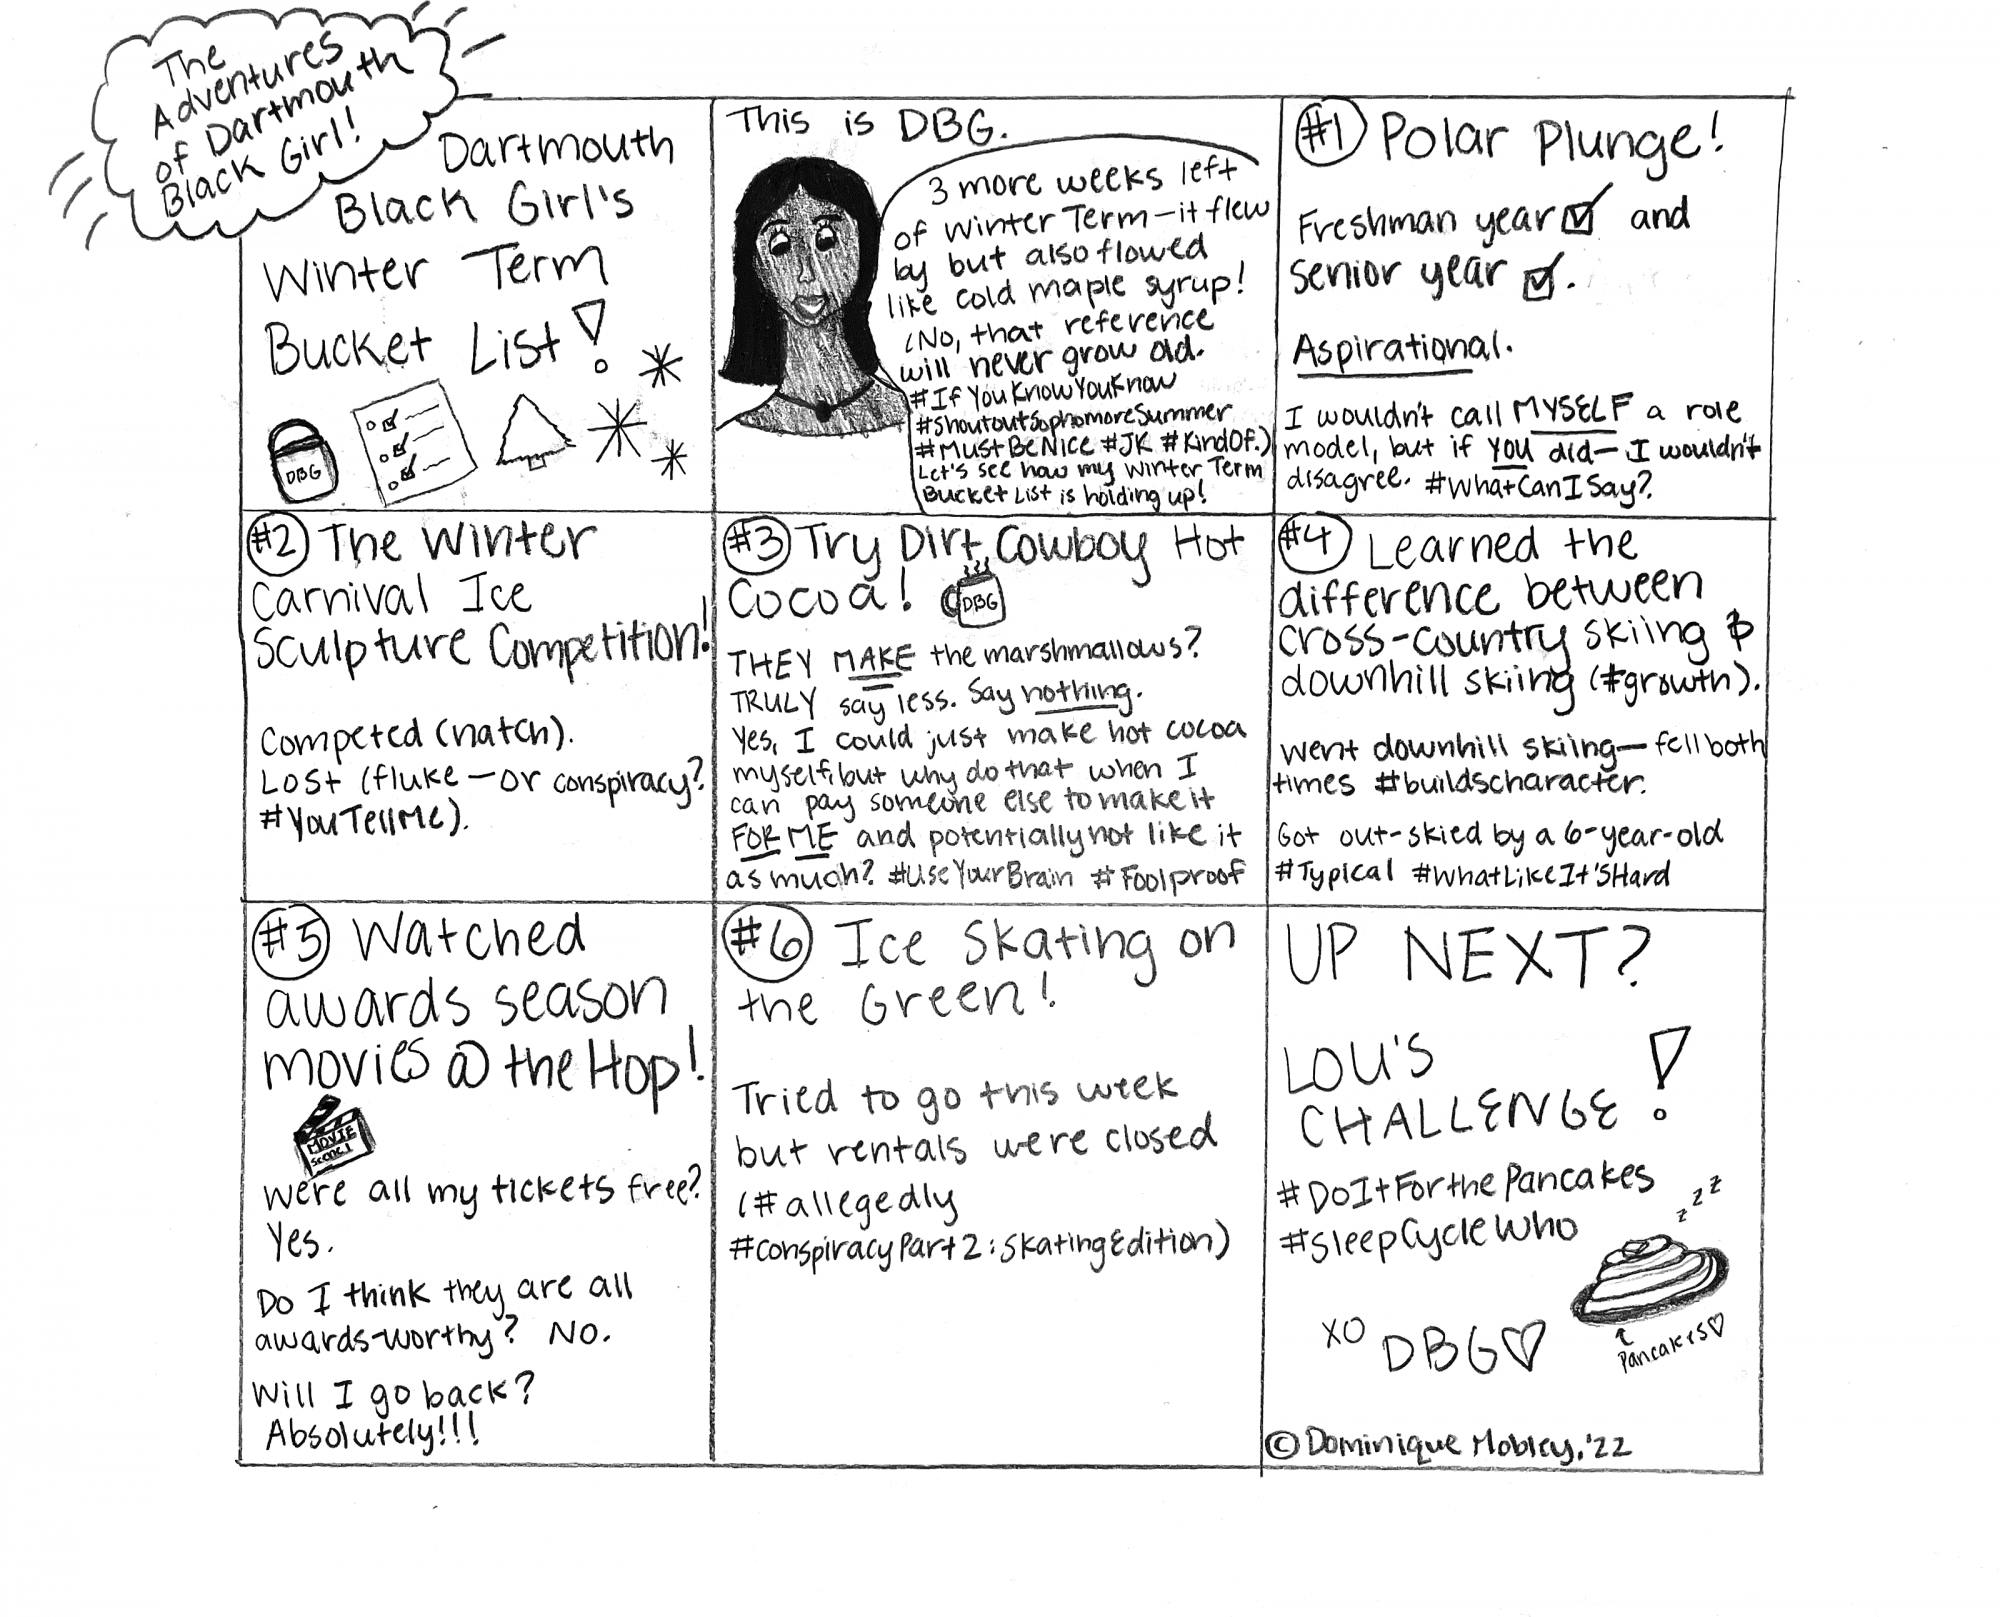 The
Adventures
of Dartmouth
Black Girl!
Dartmouth
Black Girl's
Winter Term
Bucket List!
DBG
This is DBG.
3 more weeks left
of Winter Term - it flew
by but also flowed
like cold maple syrup!
(No, that reference
will never grow old.
#IfYouKnowYouKnow
#ShoutoutSophomoreSummer
#MustBeNice #JK #KindOf.)
Let's see how my Winter Term
Bucket List is holding up!
#1 Polar Plunge!
Freshman year and
senior year .
Aspirational.
I wouldn't call MYSELF a role
model, but if you did— I wouldn't
disagree. #WhatCanISay?
#2 The Winter
Carnival Ice
Sculpture Competition!
Competed (natch).
Lost (fluke — or conspiracy?
#YouTellMe).
#3 Try Dirt Cowboy Hot
Cocoa!
DBG
THEY MAKE the marshmallows?
TRULY say less. Say nothing.
Yes, I could just make hot cocoa
myself, but why do that when I
can pay someone else to make it
FOR ME and potentially not like it
as much? #UseYourBrain #Foolproof
#4 Learned the
difference between
cross-country skiing &
downhill skiing (#growth).
Went downhill skiing— fell both
times #buildscharacter.
Got out-skied by a 6-year-old
#Typical #WhatLikeIt'sHard
#5 Watched
awards season
movies @ the Hop!
MOVIE
Scene 1
Were all my tickets free?
Yes.
Do I think they are all
awards-worthy? No.
Will I go back?
Absolutely!!!
#6 Ice Skating on
the Green!
Tried to go this week
but rentals were closed
(#allegedly
#ConspiracyPart2:SkatingEdition)
UP NEXT?
LOU'S
CHALLENGE!
#DoItForthePancakes
#SleepCycleWho
z z z
Pancakes♡
XO DBG♡
© Dominique Mobley, '22